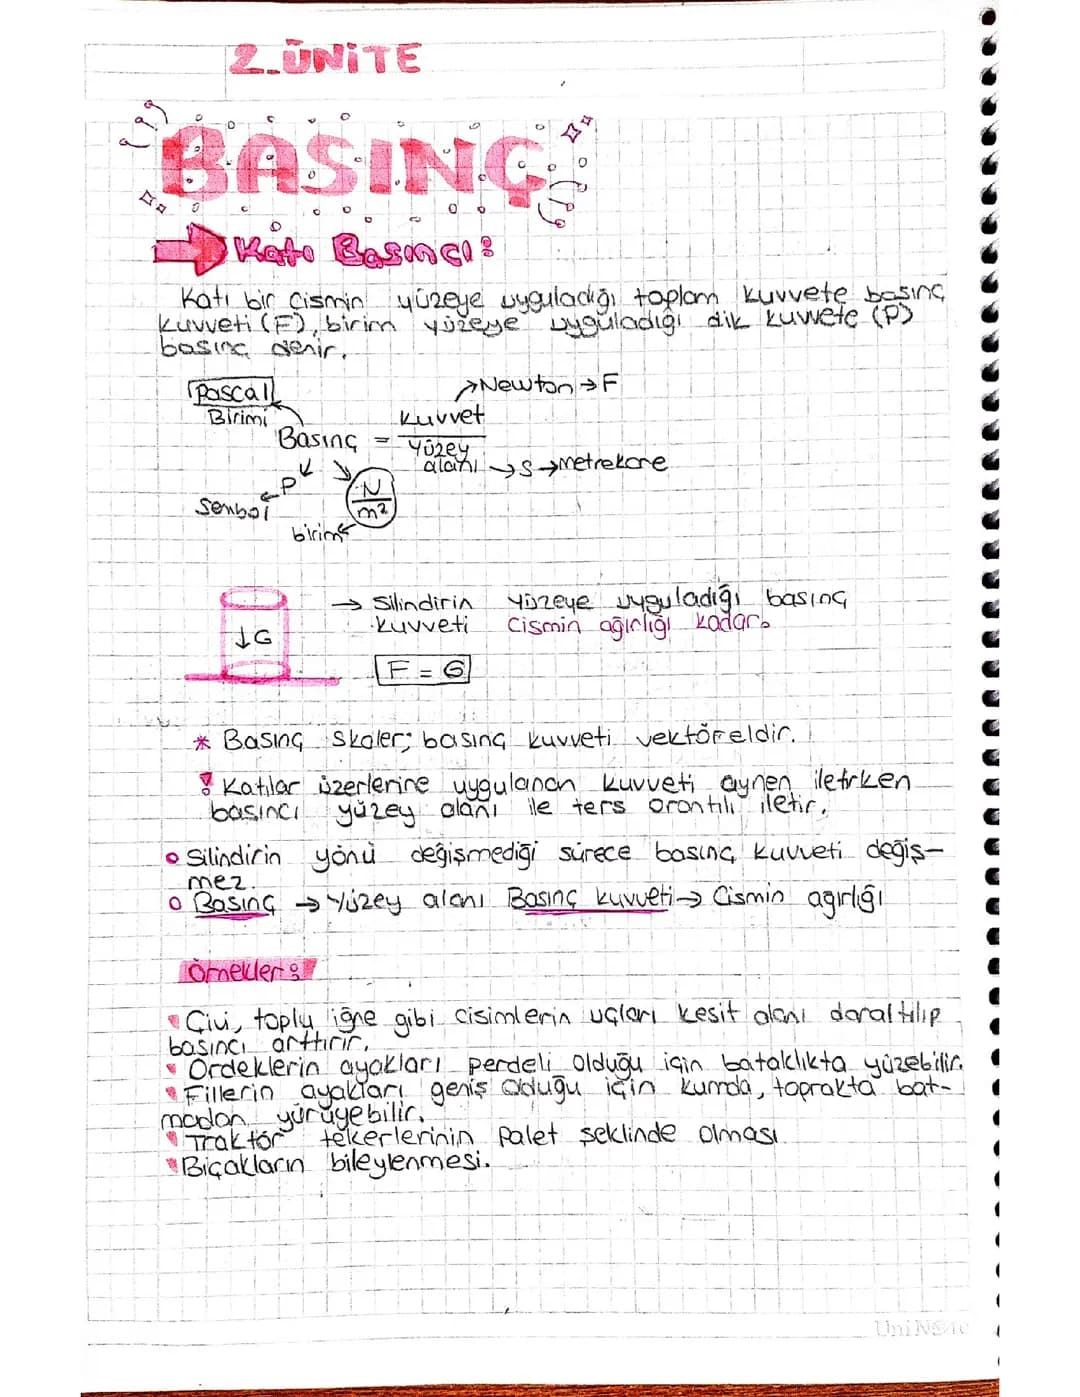 2.ÜNİTE
BASINÇ
Katı Basıncı:
Katı bir cismin yüzeye uyguladığı toplam kuvvete basınç
kuvveti (F), birim yüzeye uyguladığı dik kuvvete (P)
basınç denir.
Pascal
Birimi
→Newton→F
Basınç = Kuvvet
Yüzey
alanı →S→metrekare
P
Sembol
N
m²
birim
↓G
→ Silindirin yüzeye uyguladığı basınç
kuvveti cismin ağırlığı kadar.
F = G
* Basınç skaler; basınç kuvveti vektöreldir.
! Katılar üzerlerine uygulanan kuvveti aynen iletirken
basıncı yüzey alanı ile ters orantılı iletir.
o Silindirin yönü değişmediği sürece basınç kuvveti değiş-
mez.
o Basınç → Yüzey alanı Basınç kuvveti→ Cismin ağırlığı
Örnekler:
Çivi, toplu iğne gibi cisimlerin uçları kesit alanı daraltılıp
basıncı arttırır.
Ördeklerin ayakları perdeli olduğu için bataklıkta yüzebilir.
Fillerin ayakları geniş olduğu için kumda, toprakta bat-
madan yürüyebilir.
Traktör tekerlerinin palet şeklinde olması
Bıçakların bileylenmesi.